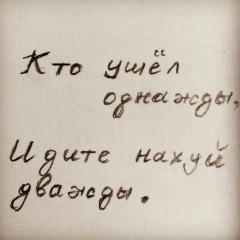 Кто ушёл
однажды,
Идите нахуй
дважды.